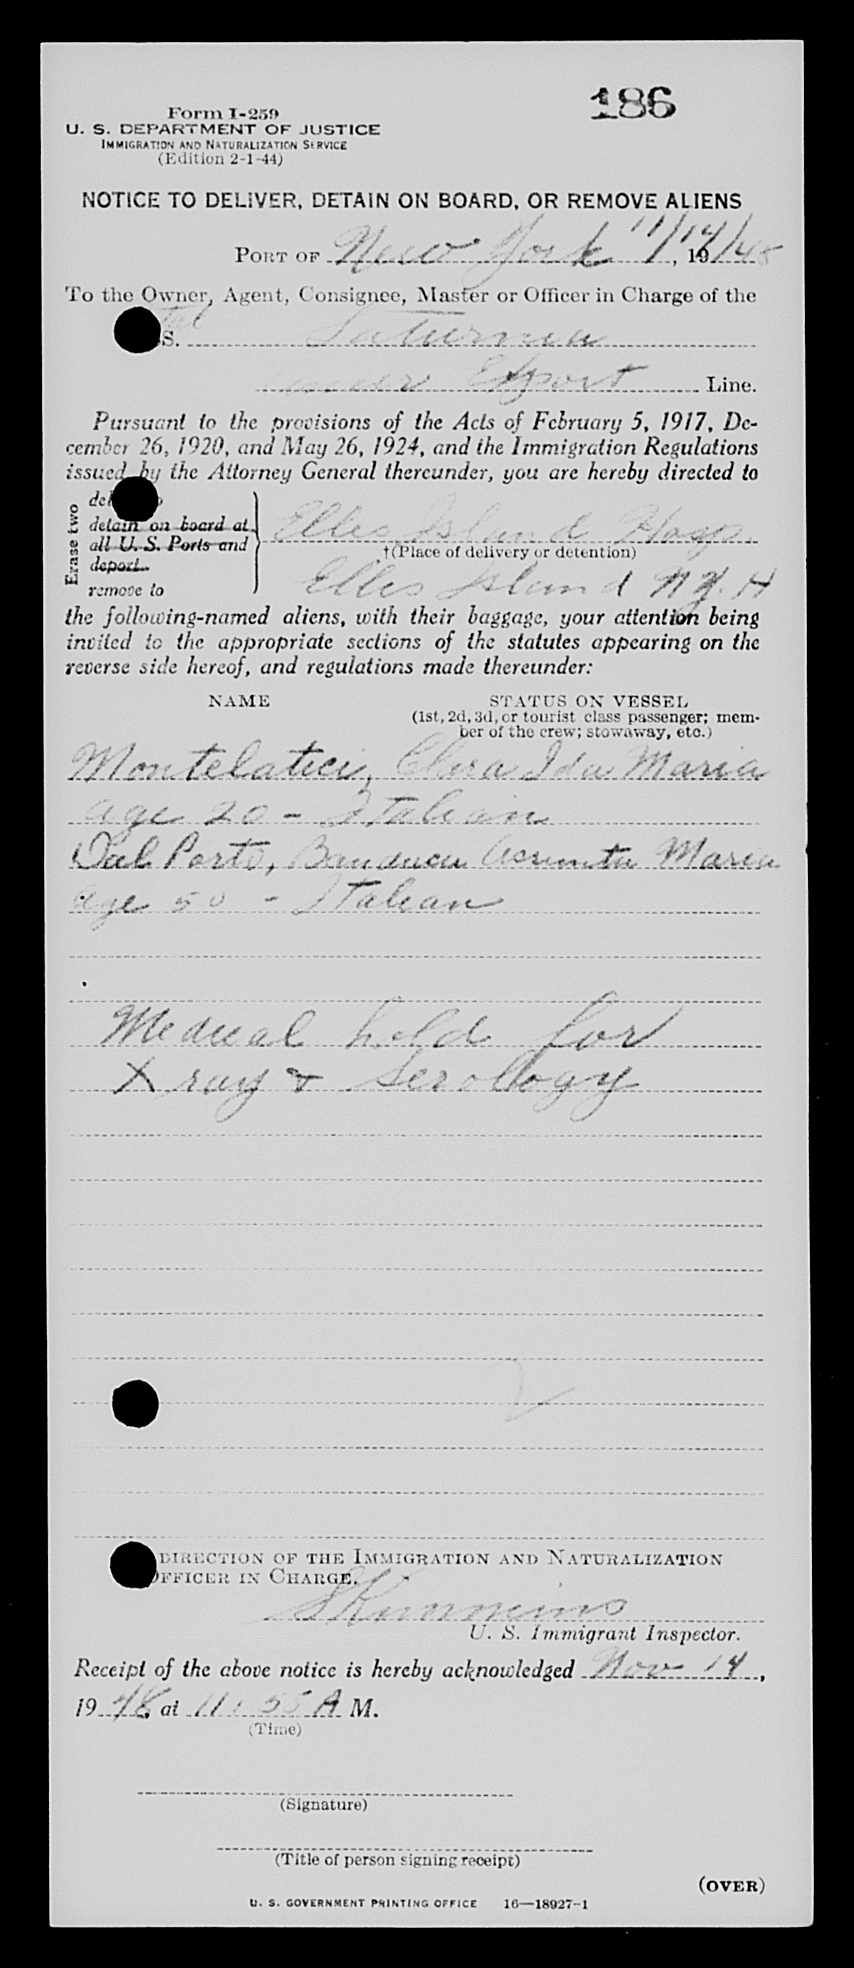 186
Form I-259
U. S. DEPARTMENT OF JUSTICE
IMMIGRATION AND NATURALIZATION SERVICE
(Edition 2-1-44)
NOTICE TO DELIVER, DETAIN ON BOARD, OR REMOVE ALIENS
PORT OF New York 11/14/48, 19
To the Owner, Agent, Consignee, Master or Officer in Charge of the
S. Saturnia
Export Line.
Pursuant to the provisions of the Acts of February 5, 1917, De-
cember 26, 1920, and May 26, 1924, and the Immigration Regulations
issued by the Attorney General thereunder, you are hereby directed to
Erase two
detain on board at
all U. S. Ports and
deport
remove to
Ellis Island Hosp.
†(Place of delivery or detention)
Ellis Island N.Y. H
the following-named aliens, with their baggage, your attention being
invited to the appropriate sections of the statutes appearing on the
reverse side hereof, and regulations made thereunder:
NAME STATUS ON VESSEL
(1st, 2d, 3d, or tourist class passenger; mem-
ber of the crew; stowaway, etc.)
Montelatici, Clara Ida Maria
age 20 - Italian
Dal Porto, Assunta Maria
age 50 - Italian
Medical hold for
X ray & Serology
DIRECTION OF THE IMMIGRATION AND NATURALIZATION
OFFICER IN CHARGE.
U. S. Immigrant Inspector.
Receipt of the above notice is hereby acknowledged Nov 14,
19 48, at 11:55 A M.
(Time)
(Signature)
(Title of person signing receipt)
(OVER)
U. S. GOVERNMENT PRINTING OFFICE 16—18927-1